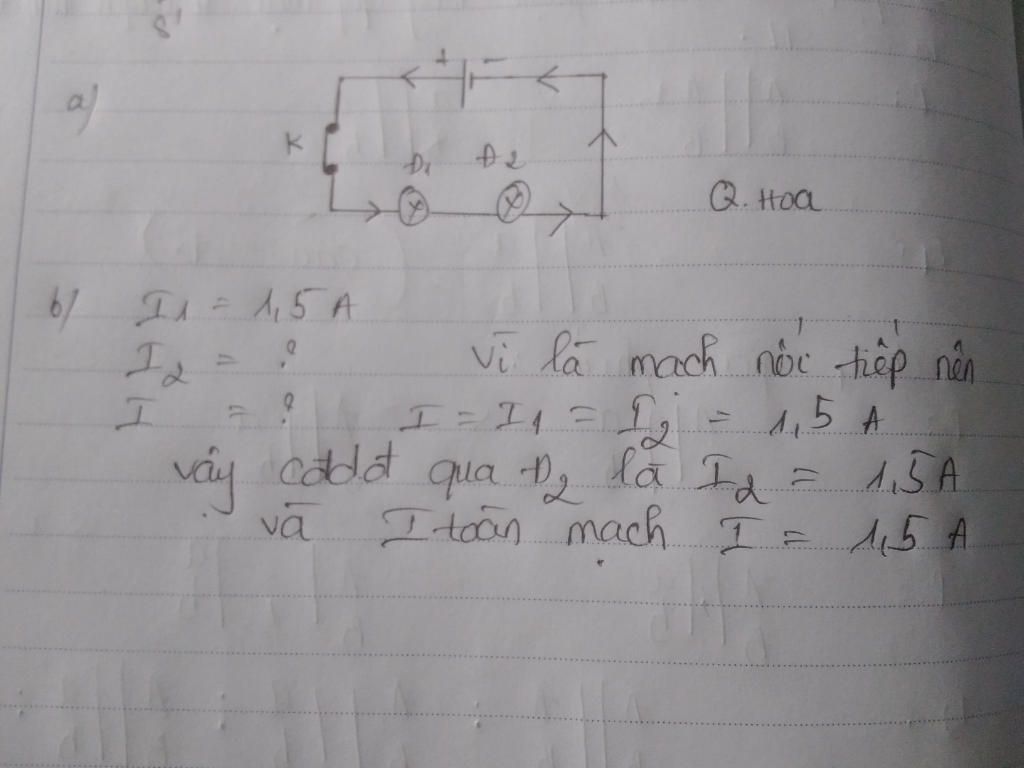 a)
+ -
K
Đ1 Đ2
Q. Hoa
b) I1 = 1,5 A
I2 = ? Vì là mạch nối tiếp nên
I = ? I = I1 = I2 = 1,5 A
vậy cđdđ qua Đ2 là I2 = 1,5A
và I toàn mạch I = 1,5 A